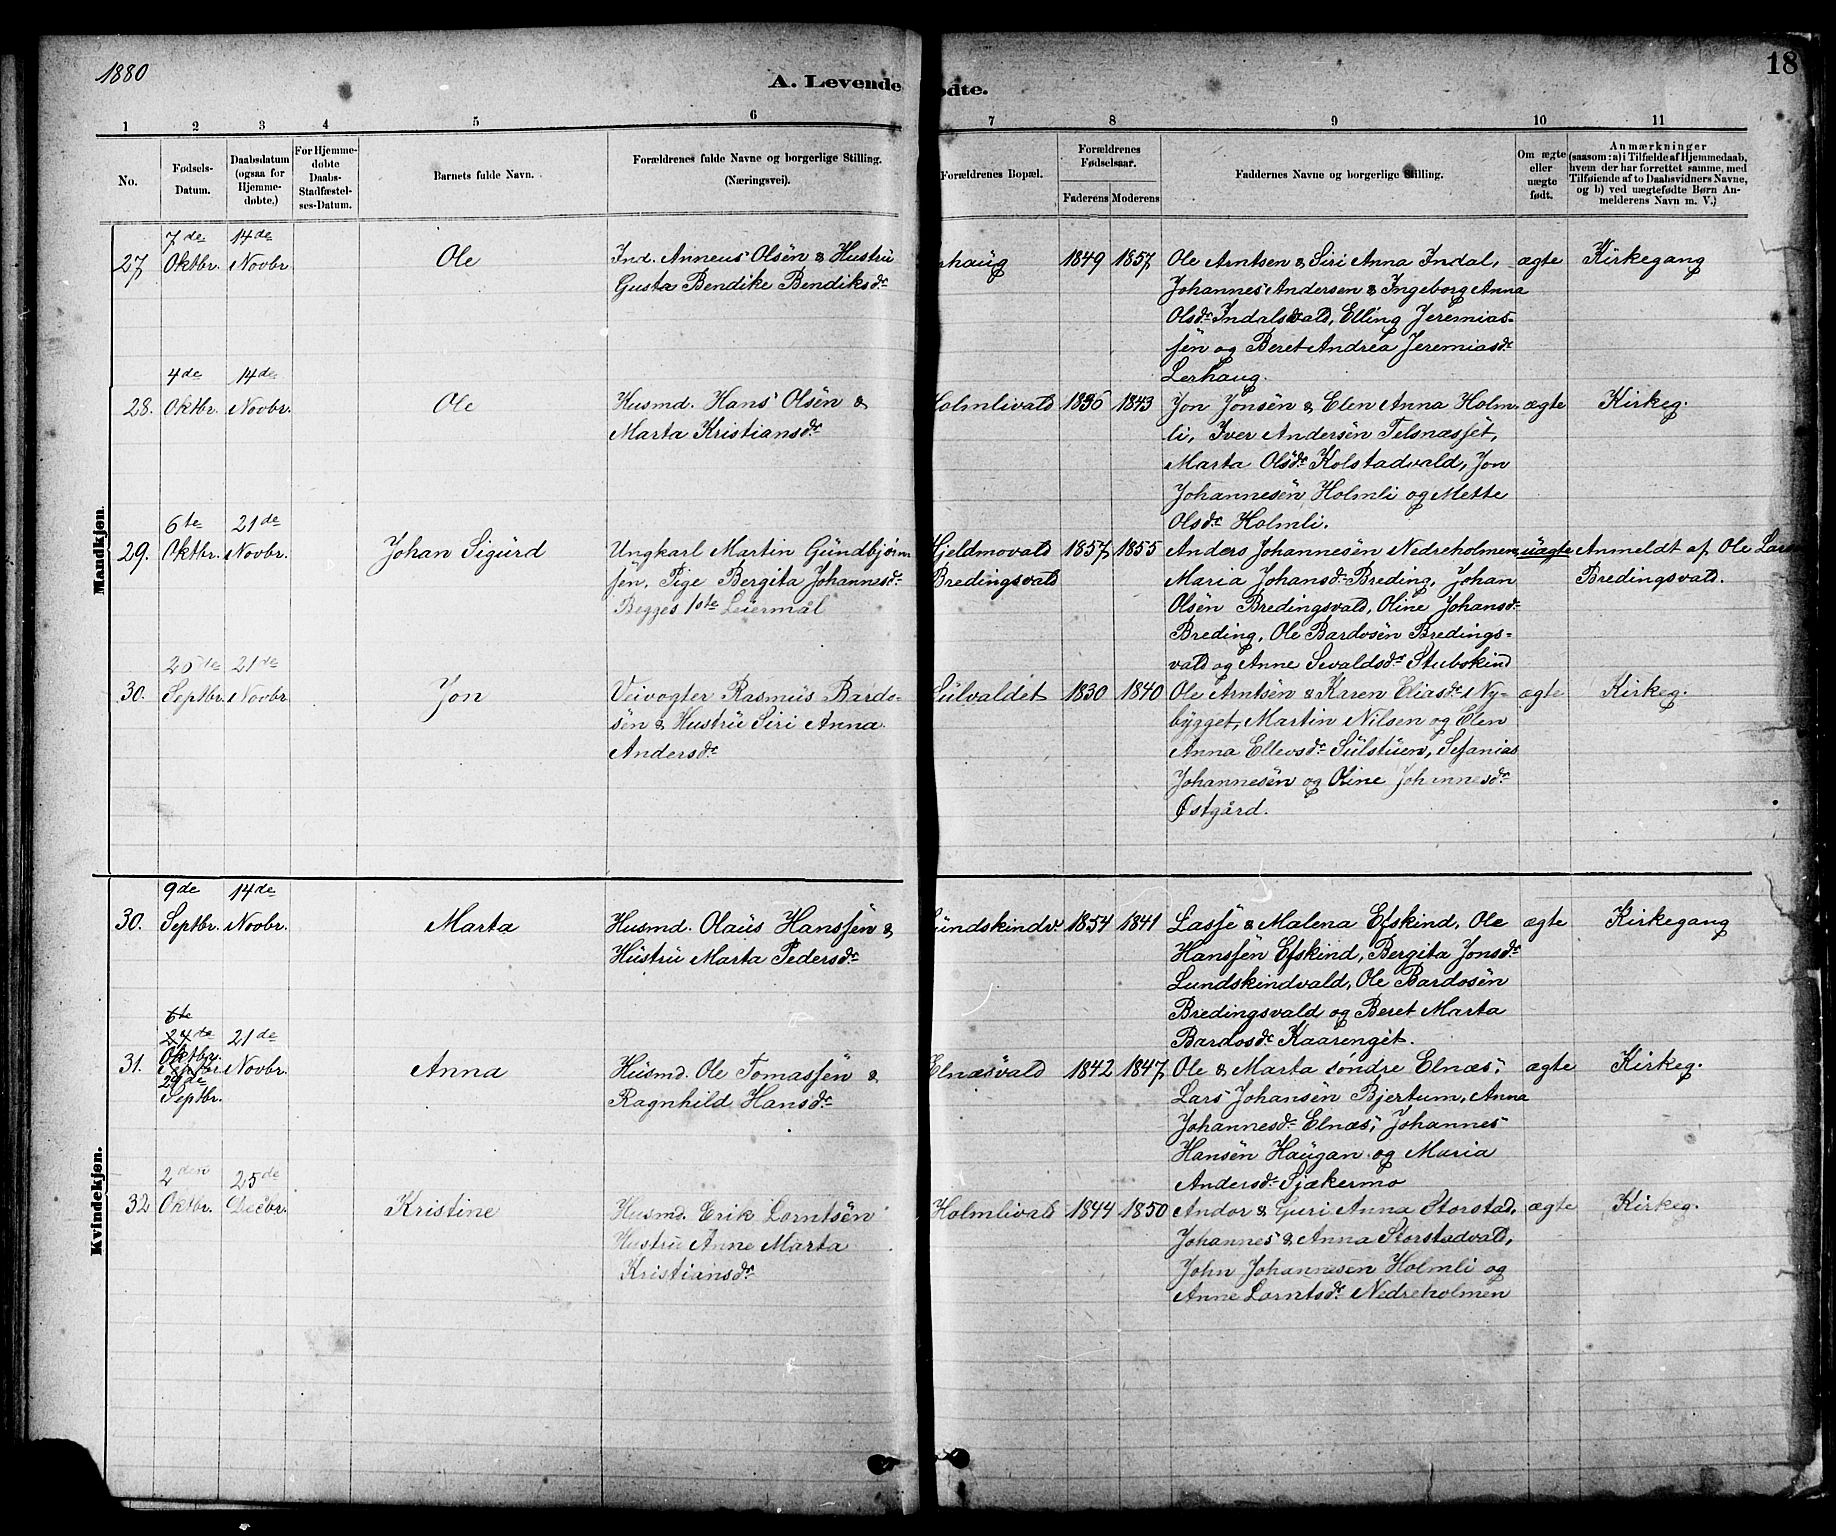 1880
18
A. Levende
ødte.
1 2 3 4 5 6 7 8 9 10 11
No.
Fødsels-
Datum.
Daabsdatum
(ogsaa for
Hjemme-
døbte.)
For Hjemme-
døbte
Daabs-
Stadfæstel-
ses-Datum.
Barnets fulde Navn.
Forældrenes fulde Navne og borgerlige Stilling.
(Næringsvei).
Forældrenes Bopæl.
Forældrenes
Fødselsaar.
Faderens Moderens
Faddernes Navne og borgerlige Stilling.
Om ægte
eller
uægte
født.
Anmærkninger
(saasom: a) i Tilfælde af Hjemmedaab,
hvem der har forrettet samme, med
Tilføiende af to Daabsvidners Navne,
og b) ved uægtefødte Børn An-
melderens Navn m. V.)
Mandkjøn.
7de 14de
27 Oktbr. Novbr. Ole Ind. Anneus Olsen & Hustru rhaug 1849 1857 Ole Arntsen & Siri Anna Indal, ægte Kirkegang
Gusta Bendike Bendiksdr Johannes Andersen & Ingeborg Anna
Olsdr Indalsvald, Elling Jeremias-
sen og Beret Andrea Jeremiasdr
Lerhaug.
4de 14de
28. Oktbr. Novbr. Ole Husmd. Hans Olsen & Holmlivald 1836 1843 Jon Jonsen & Elen Anna Holm- ægte Kirkeg.
Marta Kristiansdr li, Iver Andersen Telsnæsset,
Marta Olsdr Kolstadvald, Jon
Johannesen Holmli og Mette
Olsdr Holmli.
6te 21de
29. Oktbr. Novbr. Johan Sigurd Ungkarl Martin Gundbjørn- Hjeldmovald 1857 1855 Anders Johannesen Nedreholmen uægte Anmeldt af Ole Lars
sen, Pige Bergita Johannesdr Bredingsvald Maria Johansdr Breding, Johan Bredingsvald.
Begges 1ste Leiermål Olsen Bredingsvald, Oline Johansdr
Breding, Ole Bardosen Bredings-
vald og Anne Sevaldsdr Stubskind
25de 21de
30. Septbr. Novbr. Jon Veivogter Rasmus Bardo- Sulvaldet 1830 1840 Ole Arntsen & Karen Eliasdr Ny- ægte Kirkeg.
sen & Hustru Siri Anna bygget, Martin Nilsen og Elen
Andersdr Anna Ellevsdr Sulstuen, Sefanias
Johannesen og Oline Johannesdr
Østgård.
Kvindekjøn.
9de 14de
30. Septbr. Novbr. Marta Husmd. Olaus Hanssen & Lundskindv. 1854 1841 Lasse & Malena Efskind, Ole ægte Kirkegang
Hustru Marta Pedersdr Hanssen Efskind, Bergita Jonsdr
Lundskindvald, Ole Bardosen
Bredingsvald og Beret Marta
Bardosdr Kaarenget.
6te
24de 21de
Oktbr.
31. Septbr. Novbr. Anna Husmd. Ole Tomassen & Elnæsvald 1842 1847 Ole & Marta søndre Elnæs, ægte Kirkeg.
29de
Septbr. Ragnhild Hansdr Lars Johansen Bjertum, Anna
Johannesdr Elnæs, Johannes
Hansen Haugan og Maria
Andersdr Sjækermo
2den 25de
32 Oktbr. Decbr. Kristine Husmd. Erik Lorntsen Holmlivald 1844 1850 Andor & Guri Anna Storstad, ægte Kirkeg.
Hustru Anne Marta Johannes & Anna Storstadvald,
Kristiansdr John Johannesen Holmli og
Anne Lorntsdr Nedreholmen